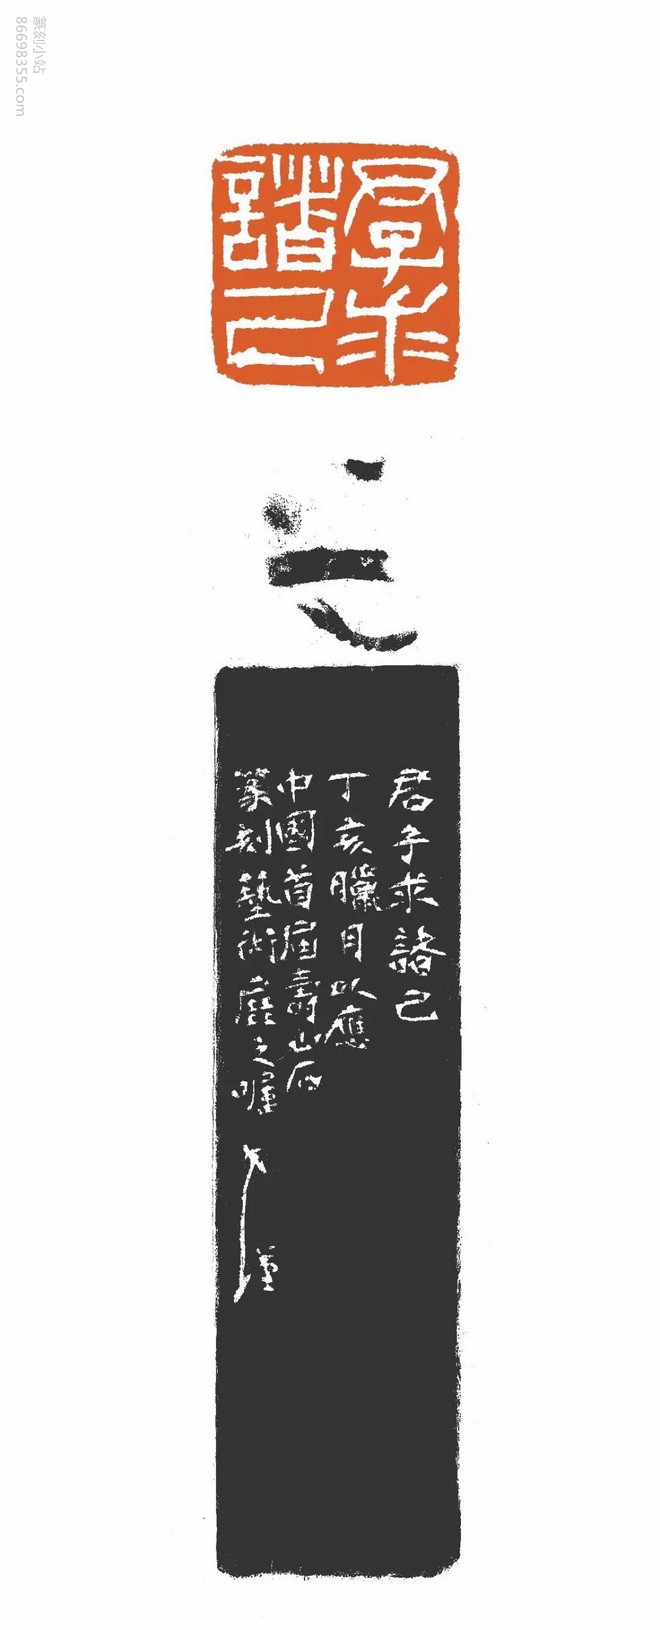 篆刻小站
86698355.com
君子求
諸己
君子求諸己
丁亥臘月以應
中國首屆壽山石
篆刻藝術展之囑